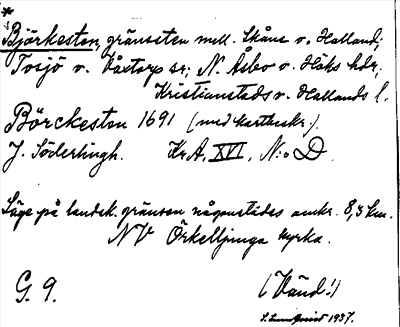 *
Björkesten, gränssten mell. Skåne o. Halland;
Tosjö o. Våxtorp sr; N. Åsbo o. Höks hdr,
Kristianstads o. Hallands l.
Börckesten 1691 (med kartbeskr.).
J. Söderlingh. KrA, XVI, N:o D.
Läge på landsk. gränsen någonstädes omkr. 8,5 km.
NV Örkelljunga kyrka.
G. 9. (Vänd!)
S. Lundquist 1937.